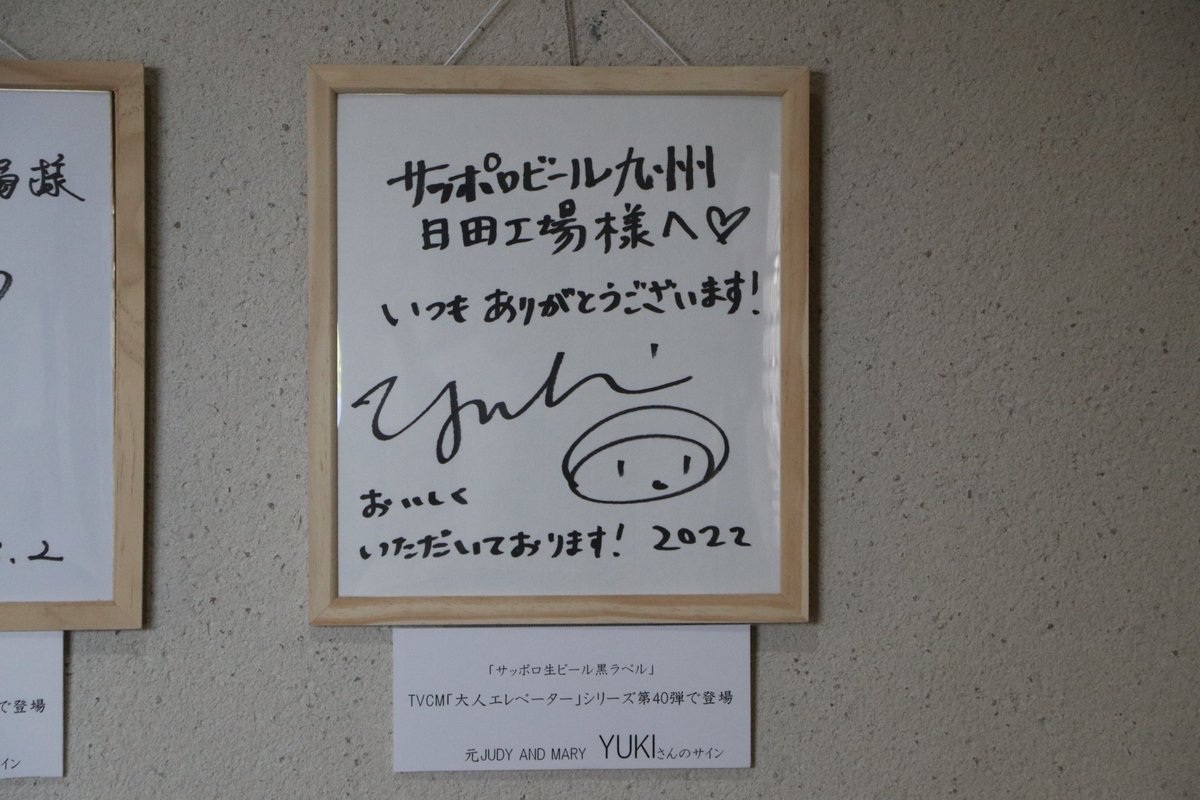 場様
.2
で登場
イン
サッポロビール九州
日田工場様へ♡
いつもありがとうございます!
yuki
おいしく
いただいております! 2022
「サッポロ生ビール黒ラベル」
TVCM「大人エレベーター」シリーズ第40弾で登場
元JUDY AND MARY YUKIさんのサイン